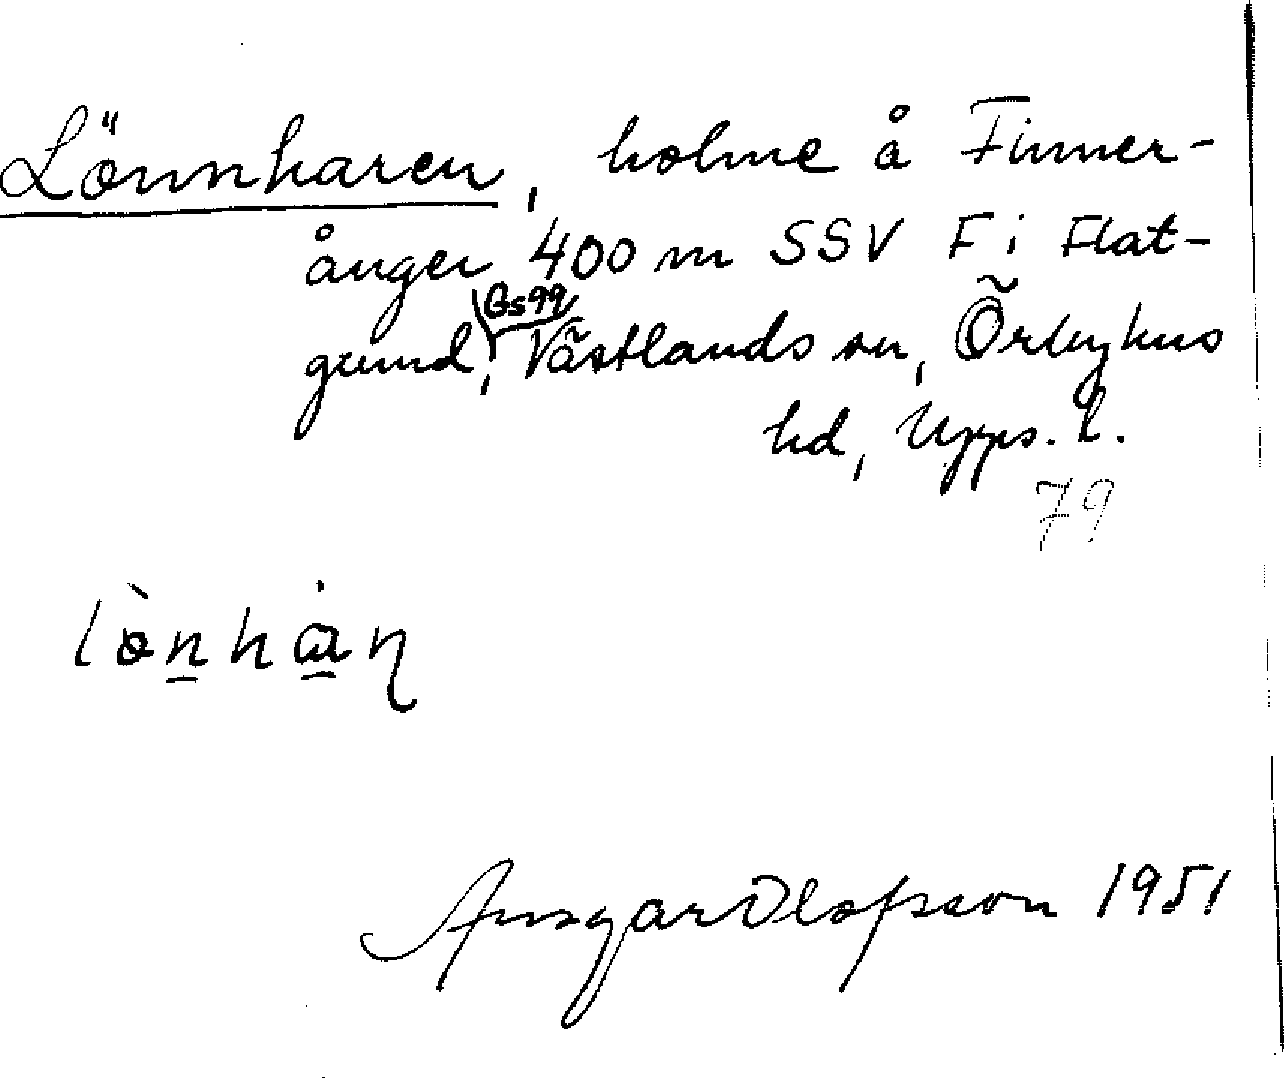 Lönnharen, holme å Finner-
ånger 400 m SSV F i Flat-
grund, Gs99 Västlands sn, Örbyhus
hd, Upps. l.
79
Ansgar Olofsson 1951